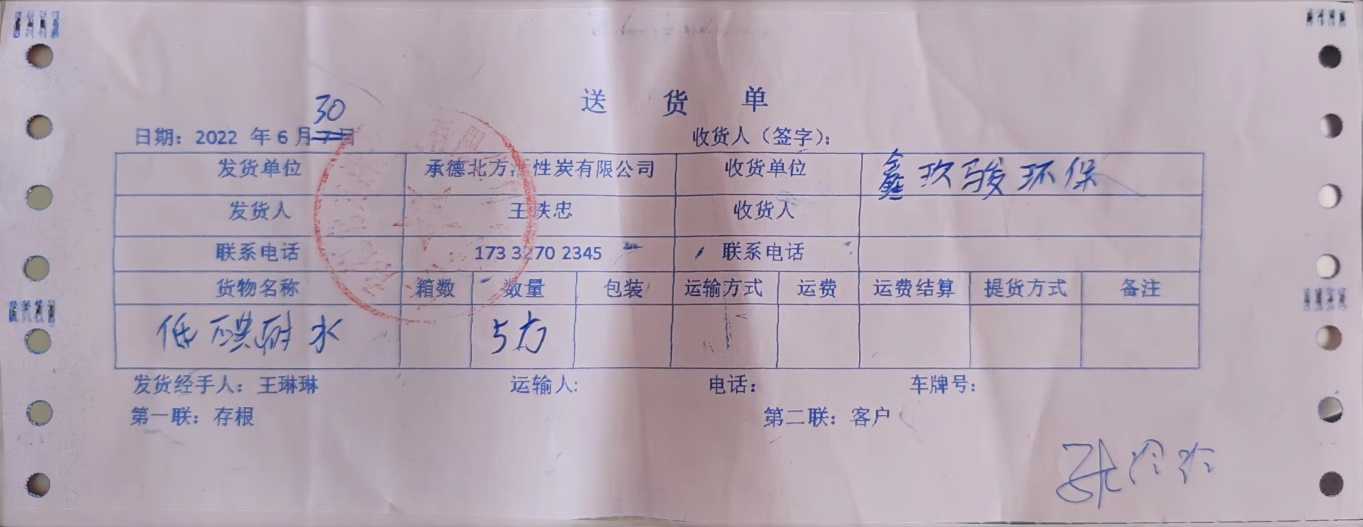 送 货 单
30
日期：2022 年 6 月 日 收货人（签字）：
发货单位 承德北方活性炭有限公司 收货单位 鑫玖骏环保
发货人 王铁忠 收货人
联系电话 173 3270 2345 联系电话
货物名称 箱数 数量 包装 运输方式 运费 运费结算 提货方式 备注
低碘耐水 5方
发货经手人：王琳琳 运输人: 电话： 车牌号：
第一联：存根 第二联：客户